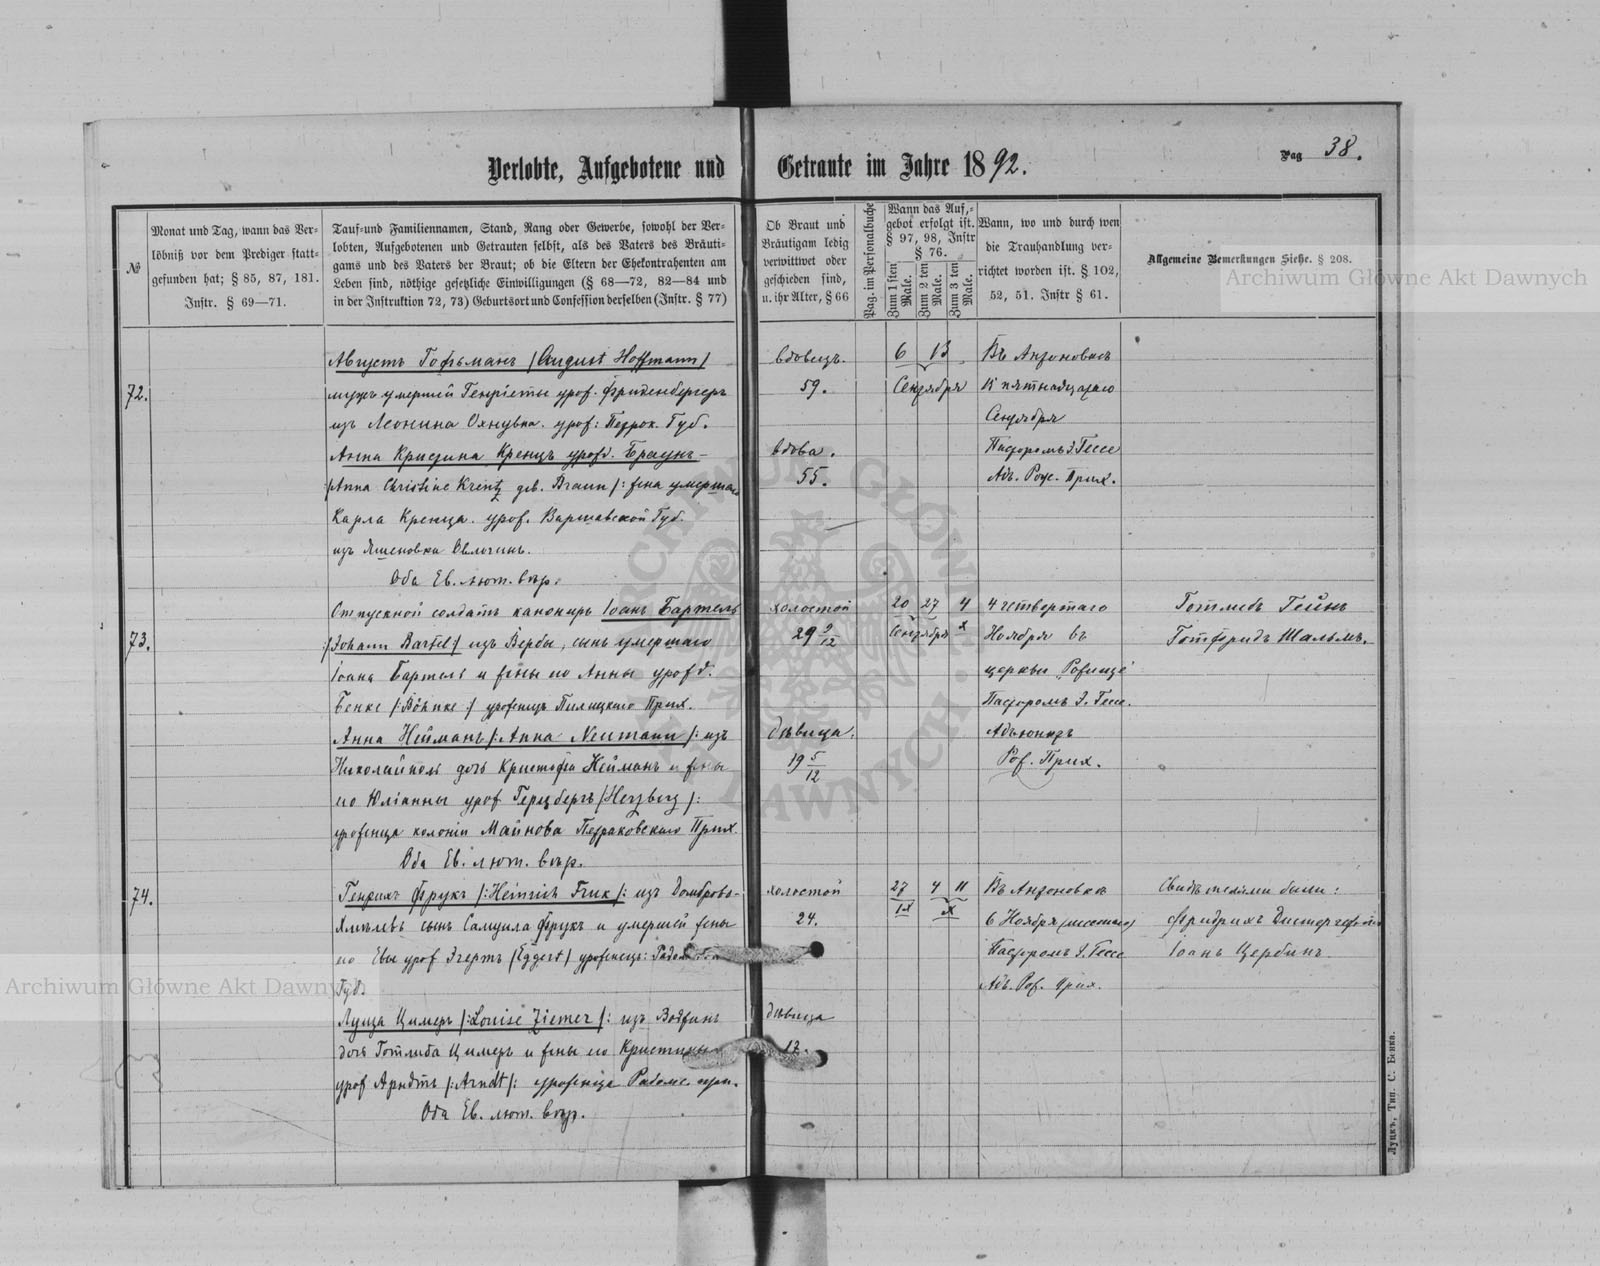 Verlobte, Aufgebotene und Getraute im Jahre 1892.
Pag 38.
№
Monat und Tag, wann das Ver-
löbniß vor dem Prediger statt-
gefunden hat; § 85, 87, 181.
Instr. § 69—71.
Tauf=und Familiennamen, Stand, Rang oder Gewerbe, sowohl der Ver-
lobten, Aufgebotenen und Getrauten selbst, als des Vaters des Bräuti-
gams und des Vaters der Braut; ob die Eltern der Ehekontrahenten am
Leben sind, nöthige gesetzliche Einwilligungen (§ 68—72, 82—84 und
in der Instruktion 72, 73) Geburtsort und Confession derselben (Instr. § 77)
Ob Braut und
Bräutigam ledig
verwittwet oder
geschieden sind,
u. ihr Alter, § 66
Pag. im Personalbuche
Wann das Auf,-
gebot erfolgt ist.
§ 97, 98, Instr
§ 76.
Zum 1 sten Male.
Zum 2 ten Male.
Zum 3 ten Male.
Wann, wo und durch wen
die Trauhandlung ver-
richtet worden ist. § 102,
52, 51. Instr § 61.
Allgemeine Bemerkungen Siehe. § 208.
72.
Августъ Гофманъ /August Hoffmann/
мужъ умершей Генріеты урож. Фрикенбергеръ
изъ Леонина урож: Петрок. Губ.
Анна Кристина Кренцъ урожд. Браунъ
/Anna Christine Krentz geb. Braun/: жена умершаго
Карла Кренца. урож. Варшавской Губ.
изъ Яшеновка
Оба Ев. лют. вѣр.
вдовецъ.
59.
вдова.
55.
6 13
Сентября
Въ Антоновкѣ
15 пятнадцатаго
Сентября
Пасторомъ Э. Гессе
Адъ. Рож. Прих.
73.
Отпускной солдатъ канониръ Іоанъ Бартель
/Johann Bartel/ изъ Вербы, сынъ умершаго
Іоана Бартель и жены его Анны урожд.
Бенке /:Böhnke:/ уроженецъ Прих.
Анна Нейманъ /:Anna Neumann/: изъ
Николайполь дочь Кристофа Нейманъ и жены
его Юліанны урож Герцбергъ /Herzberg/:
уроженца колоніи Майнова Петраковскаго Прих.
Оба Ев. лют. вѣр.
холостой
29 9/12
дѣвица.
19 5/12
20 27 4
Сентября X
4 четвертаго
Ноября въ
церкви Рожище
Пасторомъ Э. Гессе.
Адъюнктъ
Рож. Прих.
Готлибъ Гейнъ
Готфридъ Шальмъ.
74.
Генрихъ Фрукъ /:Heinrich Fruk/: изъ Домброво-
сынъ Самуила Фрукъ и умершей жены
его Евы урож Эгертъ /Eggert/ уроженецъ:
Губ.
Луиза Цимеръ /:Louise Ziemer/: изъ
дочь Готлиба Цимеръ и жены его Кристины
урож Арндтъ /:Arndt/: уроженца Радомс. губ.
Оба Ев. лют. вѣр.
холостой
24.
дѣвица
17.
27 4 11
IX X
Въ Антоновкѣ
6 Ноября (шестаго)
Пасторомъ Э. Гессе
Адъ. Рож. Прих.
Свидѣтелями были:
Фридрихъ
Іоанъ Щербинъ.
Луцкъ, Тип. С. Бенка.
Archiwum Główne Akt Dawnych
Archiwum Główne Akt Dawnych
ARCHIWUM GŁÓWNE AKT DAWNYCH